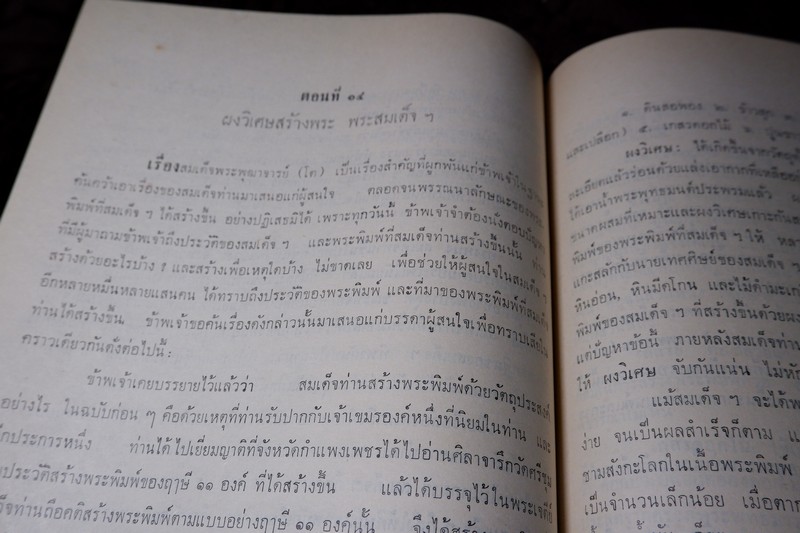 ตอนที่ ๑๔
ผงวิเศษสร้างพระ พระสมเด็จ ฯ
เรื่องสมเด็จพระพุฒาจารย์ (โต) เป็นเรื่องสำคัญที่ผูกพันแก่ข้าพเจ้าใน
ค้นคว้าเอาเรื่องของสมเด็จท่านมาเสนอแก่ผู้สนใจ ตลอดจนพรรณนาลักษณะของพระ
พิมพ์ที่สมเด็จ ฯ ได้สร้างขึ้น อย่างปฏิเสธมิได้ เพราะทุกวันนี้ ข้าพเจ้าจำต้องนั่งตอบปัญหา
ที่มีผู้มาถามข้าพเจ้าถึงประวัติของสมเด็จ ฯ และพระพิมพ์ที่สมเด็จท่านสร้างขึ้นนั้น ท่าน
สร้างด้วยอะไรบ้าง ? และสร้างเพื่อเหตุใดบ้าง ไม่ขาดเลย เพื่อช่วยให้ผู้สนใจในสมเด็จ ฯ
อีกหลายหมื่นหลายแสนคน ได้ทราบถึงประวัติของพระพิมพ์ และที่มาของพระพิมพ์ที่สมเด็จ
ท่านได้สร้างขึ้น ข้าพเจ้าขอค้นเรื่องดังกล่าวนั้นมาเสนอแก่บรรดาผู้สนใจเพื่อทราบเสียใน
คราวเดียวกันดังต่อไปนี้:
ข้าพเจ้าเคยบรรยายไว้แล้วว่า สมเด็จท่านสร้างพระพิมพ์ด้วยวัตถุประสงค์
อย่างไร ในฉบับก่อน ๆ คือด้วยเหตุที่ท่านรับปากกับเจ้าเขมรองค์หนึ่งที่นิยมในท่าน และ
อีกประการหนึ่ง ท่านได้ไปเยี่ยมญาติที่จังหวัดกำแพงเพชรได้ไปอ่านศิลาจารึกวัดศรีชุม
ประวัติสร้างพระพิมพ์ของฤาษี ๑๑ องค์ ที่ได้สร้างขึ้น แล้วได้บรรจุไว้ในพระเจดีย์
ท่านถือคติสร้างพระพิมพ์ตามแบบอย่างฤาษี ๑๑ องค์นั้น จึงได้สร้าง
๑. ดินสอพอง ๒.
และเปลือก) ๕. เกสรดอกไม้
ผงวิเศษ: ได้เกิดขึ้นจากวัตถุ
ละเอียดแล้วร่อนด้วยแล่งเอากากที่เหลือออก
ได้เอาน้ำพระพุทธมนต์ประพรมแล้ว
ขนาดผสมที่เหมาะและผงวิเศษเกาะกัน
พิมพ์ของพระพิมพ์ที่สมเด็จ ฯ ให้
แกะสลักกับนายเทศศิษย์ของสมเด็จ ฯ
หินอ่อน, หินมีดโกน และไม้ดำมะเกลือ
พิมพ์ของสมเด็จ ฯ ที่สร้างขึ้นด้วยผง
แต่ปัญหาข้อนี้ ภายหลังสมเด็จท่าน
ให้ ผงวิเศษ จับกันแน่น ไม่หัก
แม้สมเด็จ ฯ จะได้พ
ง่าย จนเป็นผลสำเร็จก็ตาม แ
ชามสังกะโลกในเนื้อพระพิมพ์
เป็นจำนวนเล็กน้อย เมื่อตาก